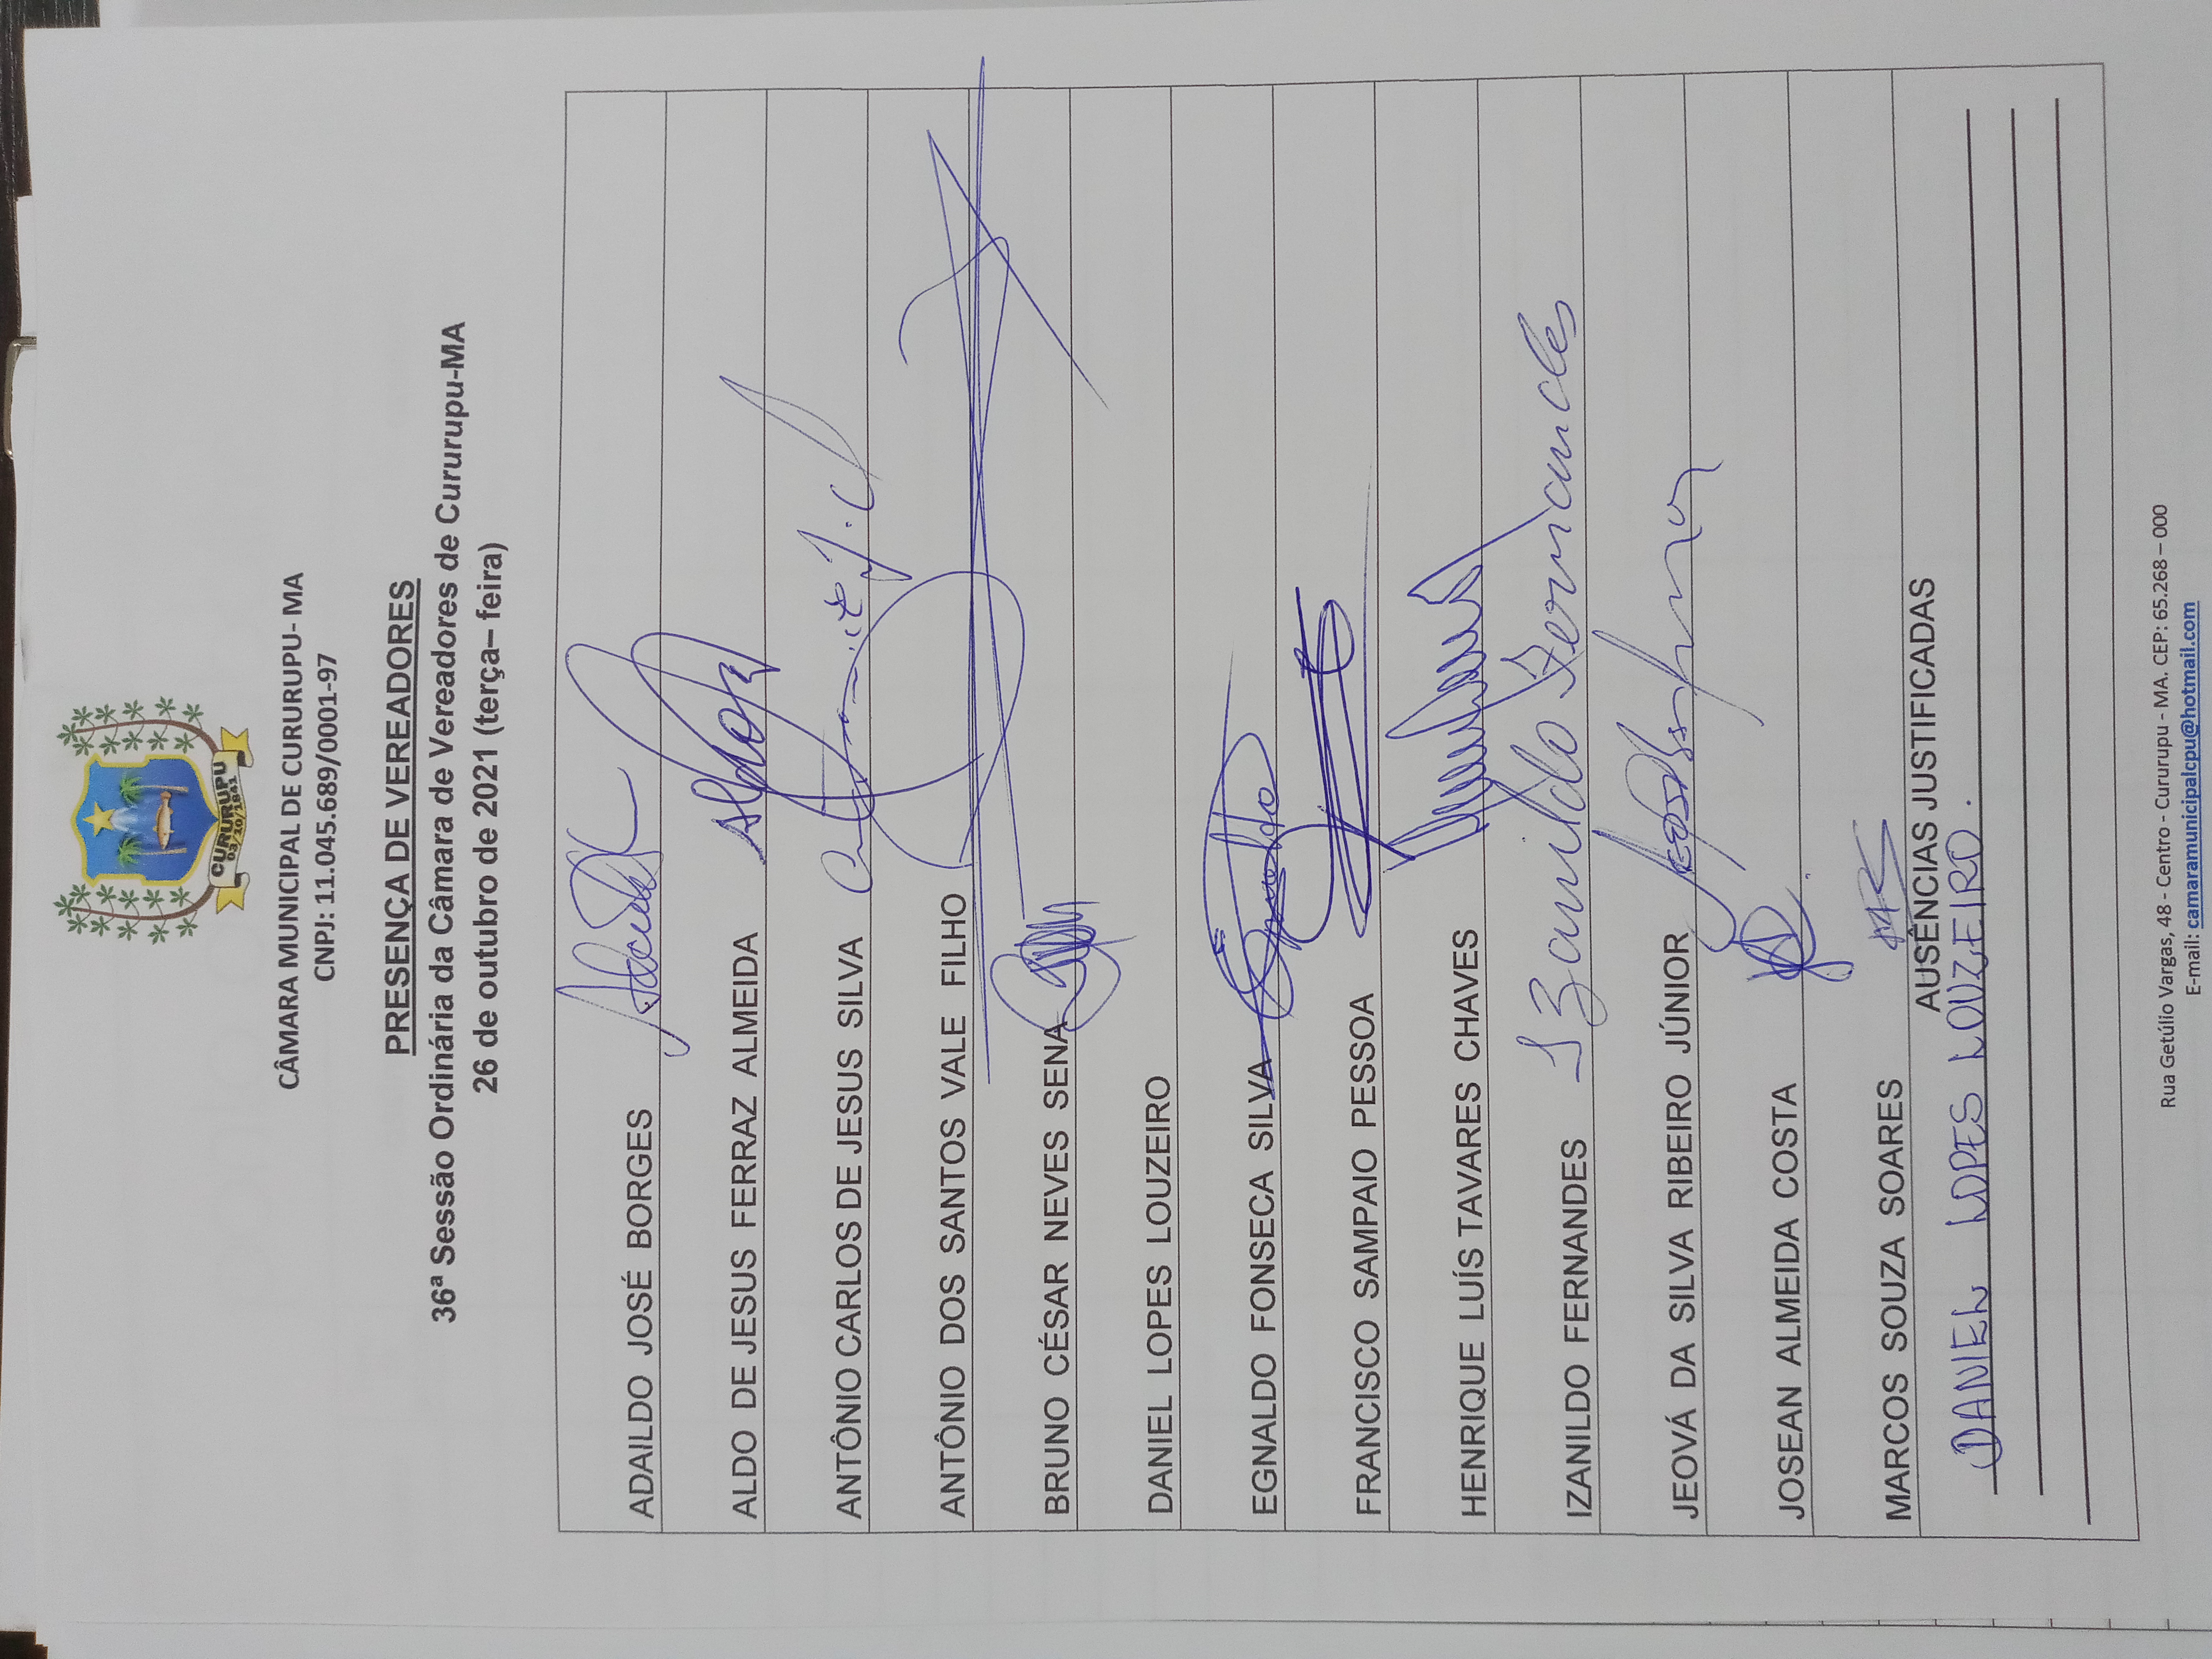 CURURUPU
03/10/1841
CÂMARA MUNICIPAL DE CURURUPU- MA
CNPJ: 11.045.689/0001-97
PRESENÇA DE VEREADORES
36ª Sessão Ordinária da Câmara de Vereadores de Cururupu-MA
26 de outubro de 2021 (terça– feira)
ADAILDO JOSÉ BORGES
ALDO DE JESUS FERRAZ ALMEIDA Aldo
ANTÔNIO CARLOS DE JESUS SILVA
ANTÔNIO DOS SANTOS VALE FILHO
BRUNO CÉSAR NEVES SENA
DANIEL LOPES LOUZEIRO
EGNALDO FONSECA SILVA Egnaldo
FRANCISCO SAMPAIO PESSOA
HENRIQUE LUÍS TAVARES CHAVES
IZANILDO FERNANDES Izanildo Fernandes
JEOVÁ DA SILVA RIBEIRO JÚNIOR
JOSEAN ALMEIDA COSTA
MARCOS SOUZA SOARES
AUSÊNCIAS JUSTIFICADAS
DANIEL LOPES LOUZEIRO.
Rua Getúlio Vargas, 48 - Centro - Cururupu - MA. CEP: 65.268 – 000
E-mail: camaramunicipalcpu@hotmail.com